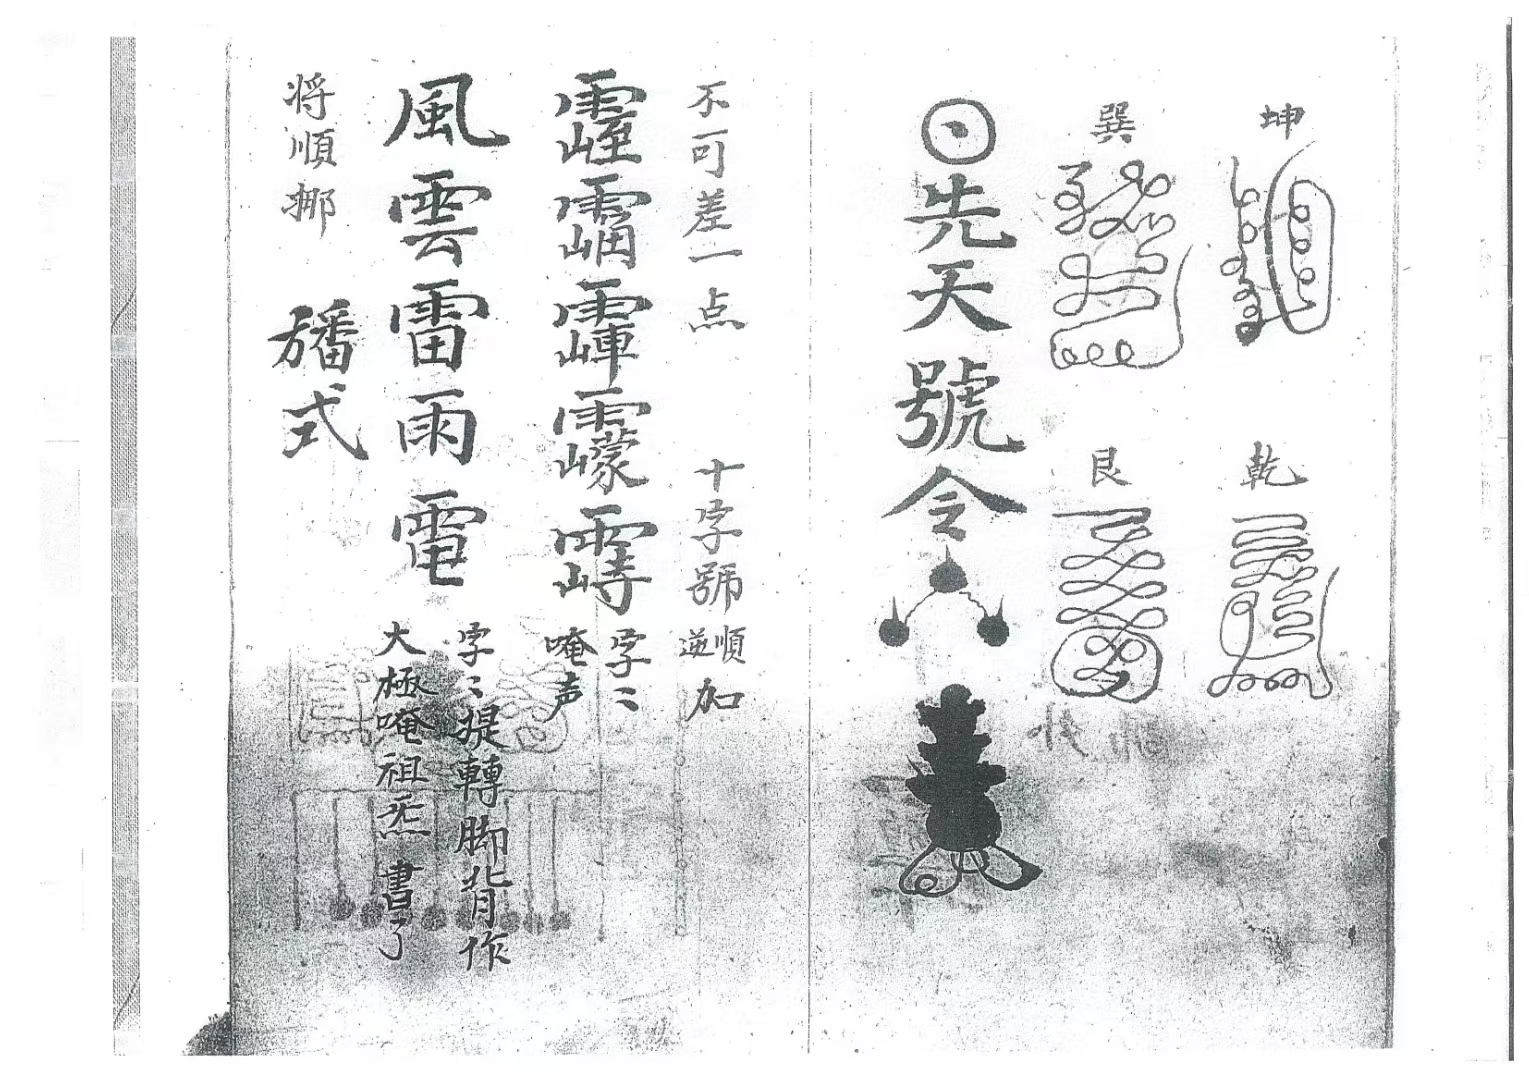 坤
乾
巽
艮
先天號令
不可差一点 十字號順逆加
字〻唵声
風雲雷雨電
字〻提轉脚背作
大極唵祖炁書了
将順挪
旛式